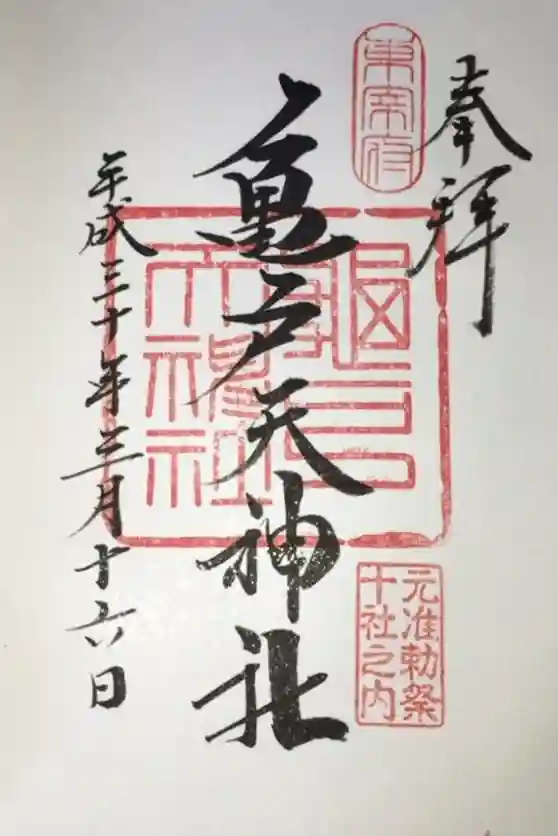 奉拝
東京府
亀戸天神社
亀戸天神社
元准勅祭
十社之内
平成三十年三月十六日